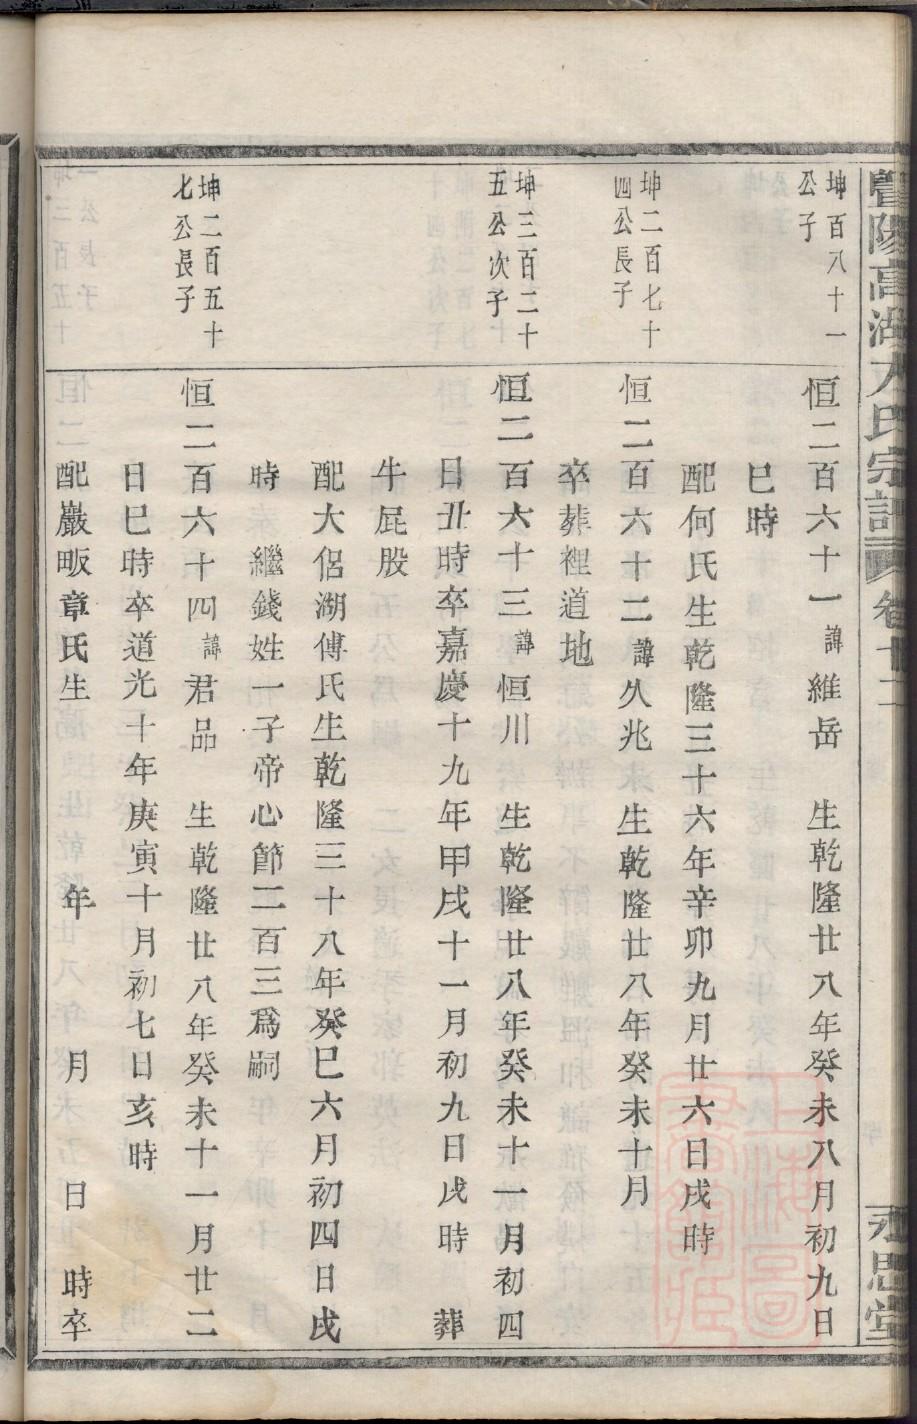 坤百八十一
公子
恒二百六十一諱維岳　生乾隆廿八年癸未八月初九日
巳時
配何氏生乾隆三十六年辛卯九月廿六日戌時
坤二百七十
四公長子
恒二百六十二諱久兆　生乾隆廿八年癸未十月
卒葬裡道地
坤三百二十
五公次子
恒二百六十三諱恒川　生乾隆廿八年癸未十一月初四
日丑時卒嘉慶十九年甲戌十一月初九日戌時　葬
牛屁股
配大侶湖傅氏生乾隆三十八年癸巳六月初四日戌
時　繼錢姓一子帝心節二百三爲嗣
坤二百五十
七公長子
恒二百六十四諱君品　生乾隆廿八年癸未十一月廿二
日巳時卒道光十年庚寅十月初七日亥時
配巖畈章氏生　年　月　日　時卒
高湖　氏宗譜　卷十二　永思堂